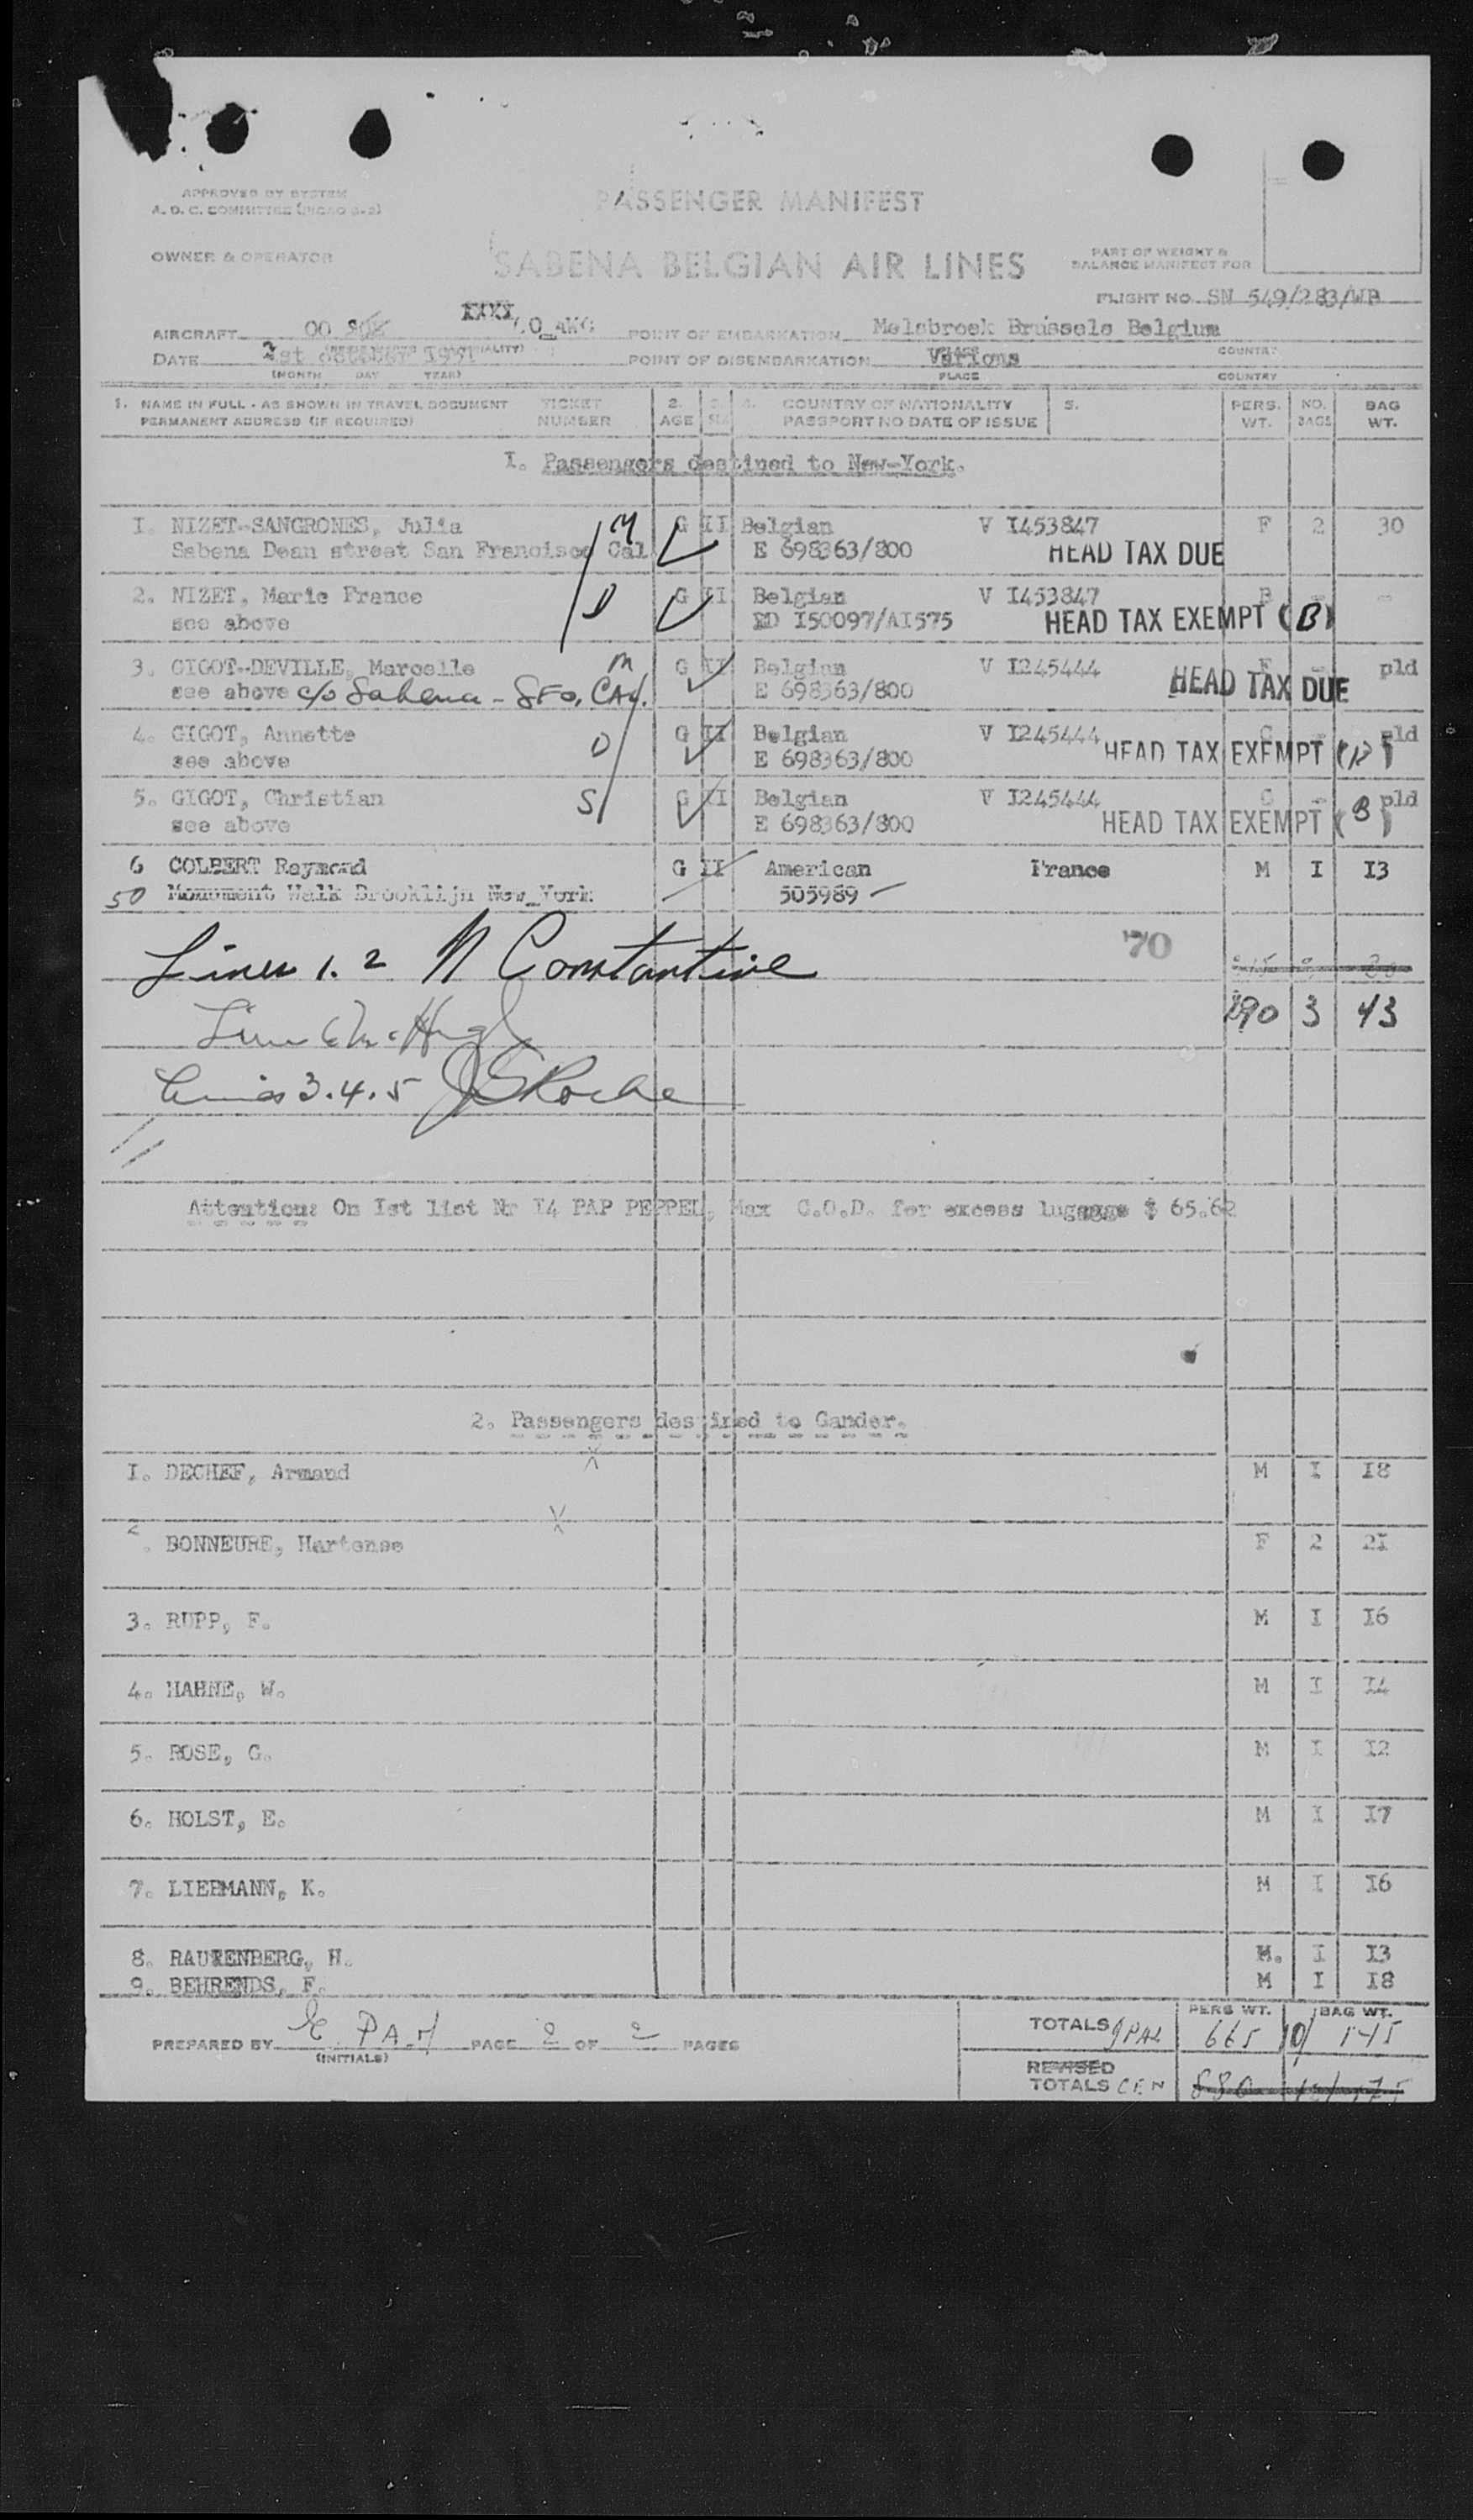 APPROVED BY SYSTEM
A. O. C. COMMITTEE
PASSENGER MANIFEST
OWNER & OPERATOR
SABENA BELGIAN AIR LINES
PART OF WEIGHT &
BALANCE MANIFEST FOR
FLIGHT NO. SN 549/283/WB
AIRCRAFT OO AWG POINT OF EMBARKATION Melsbroek Brussels Belgium
DATE 1951 POINT OF DISEMBARKATION Various COUNTRY
(MONTH DAY YEAR) PLACE COUNTRY
1. NAME IN FULL - AS SHOWN IN TRAVEL DOCUMENT TICKET 2. COUNTRY OF NATIONALITY 5. PERS. NO. BAG
PERMANENT ADDRESS (IF REQUIRED) NUMBER AGE PASSPORT NO DATE OF ISSUE WT. BAGS WT.
I. Passengers destined to New-York.
I. NIZET-SANGRONES, Julia M G II Belgian V I453847 F 2 30
Sabena Dean street San Francisco Cal E 698363/800 HEAD TAX DUE
2. NIZET, Marie France D G II Belgian V I453847 B -
see above ED I50097/AI575 HEAD TAX EXEMPT (B)
3. GIGOT-DEVILLE, Marcelle M G II Belgian V I245444 F - pld
see above c/o Sabena - SFO, CAL. E 698363/800 HEAD TAX DUE
4. GIGOT, Annette D G II Belgian V I245444 C - pld
see above E 698363/800 HEAD TAX EXEMPT (B)
5. GIGOT, Christian S G II Belgian V I245444 C - pld
see above E 698363/800 HEAD TAX EXEMPT (B)
6 COLBERT Raymond G II American France M I I3
50 Monument Walk Brooklijn New_York 505989
Lines 1. 2 N Constantine 70
390 3 43
Line 6
Lines 3.4.5 J Roche
Attention: On Ist list Nr I4 PAP PEPPEL, Max C.O.D. for excess luggage $ 65.62
2. Passengers destined to Gander.
I. DECHEF, Armand M I I8
2. BONNEURE, Hartense F 2 2I
3. RUPP, F. M I I6
4. HAHNE, W. M I I4
5. ROSE, G. M I I2
6. HOLST, E. M I I7
7. LIEBMANN, K. M I I6
8. RAUTENBERG, H. M. I I3
9. BEHRENDS, F. M I I8
PERS WT. BAG WT.
TOTALS 665 10 145
PREPARED BY PAGE 2 OF 2 PAGES
(INITIALS)
REVISED
TOTALS 880